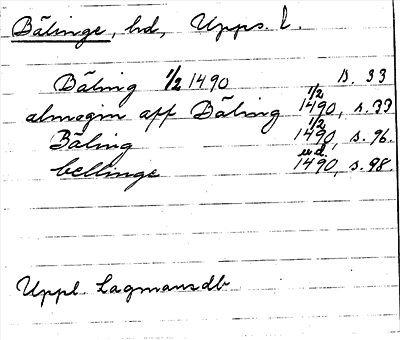 Bälinge, hd, Upps. l.
Bäling 1/2 1490 s. 33
almogin aff Bäling 1/2 1490, s. 33
Bäling 1/2 1490, s. 96.
bellinge u.d. 1490, s. 98.
Uppl. Lagmansdb